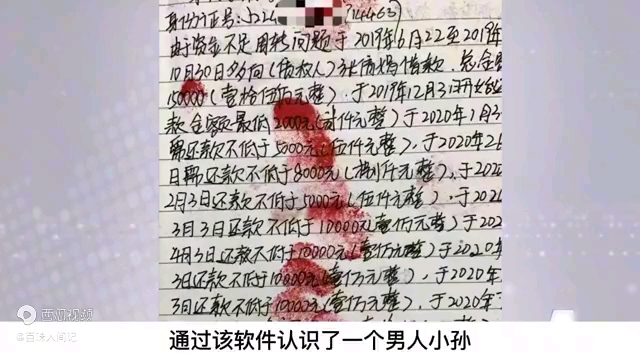 身份证号:522
由于资金不足周转问题于2019年6月22至2019年
10月30日多向(债权人)张倩妈借款,总金
150000(壹拾伍万元整),于2019年12月31开始
款金额最低2000元(贰仟元整)于2020年1月3
需还款不低于5000元(伍仟元整),于2020年2月
日需还款不低于8000元(捌仟元整),于202
2月3日还款不低于5000元(伍仟元整),于202
3月3日还款不低于10000元(壹万元整)于202
4月3日还款不低于10000元(壹万元整)于2020年
3日还款不低于10000元(壹万元整),于2020年
3日还款不低于10000元(壹万元整),于2020年
西瓜视频
@百味人间记
通过该软件认识了一个男人小孙